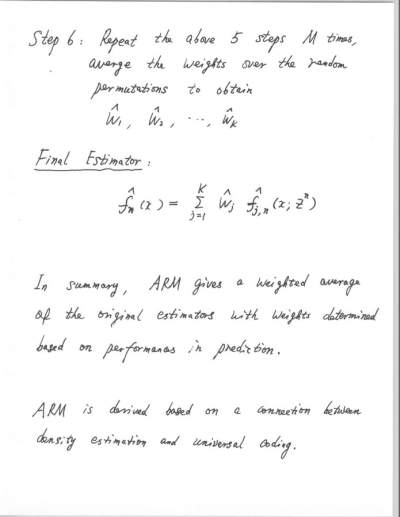 Step 6: Repeat the above 5 steps M times,
averge the weights over the random
permutations to obtain
Ŵ₁, Ŵ₂, ⋯, Ŵ_K
Final Estimator:
f̂_n(x) = Σ_{j=1}^{K} Ŵ_j f̂_{j,n}(x; Z^n)
In summary, ARM gives a weighted average
of the original estimators with weights determined
based on performances in prediction.
ARM is derived based on a connection between
density estimation and universal coding.